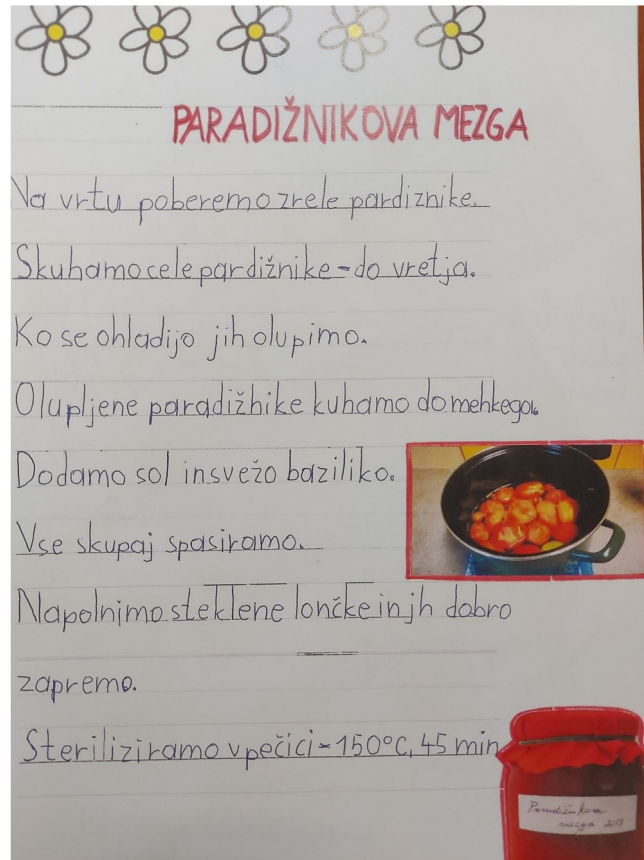 PARADIŽNIKOVA MEZGA
Na vrtu poberemo zrele pardiznike.
Skuhamo cele pardižnike - do vretja.
Ko se ohladijo jih olupimo.
Olupljene paradižnike kuhamo do mehkega.
Dodamo sol in svežo baziliko.
Vse skupaj spasiramo.
Napolnimo steklene lončke in jh dobro
zapremo.
Steriliziramo v pečici - 150°C, 45 min
Paradižnikova
mezga 2013